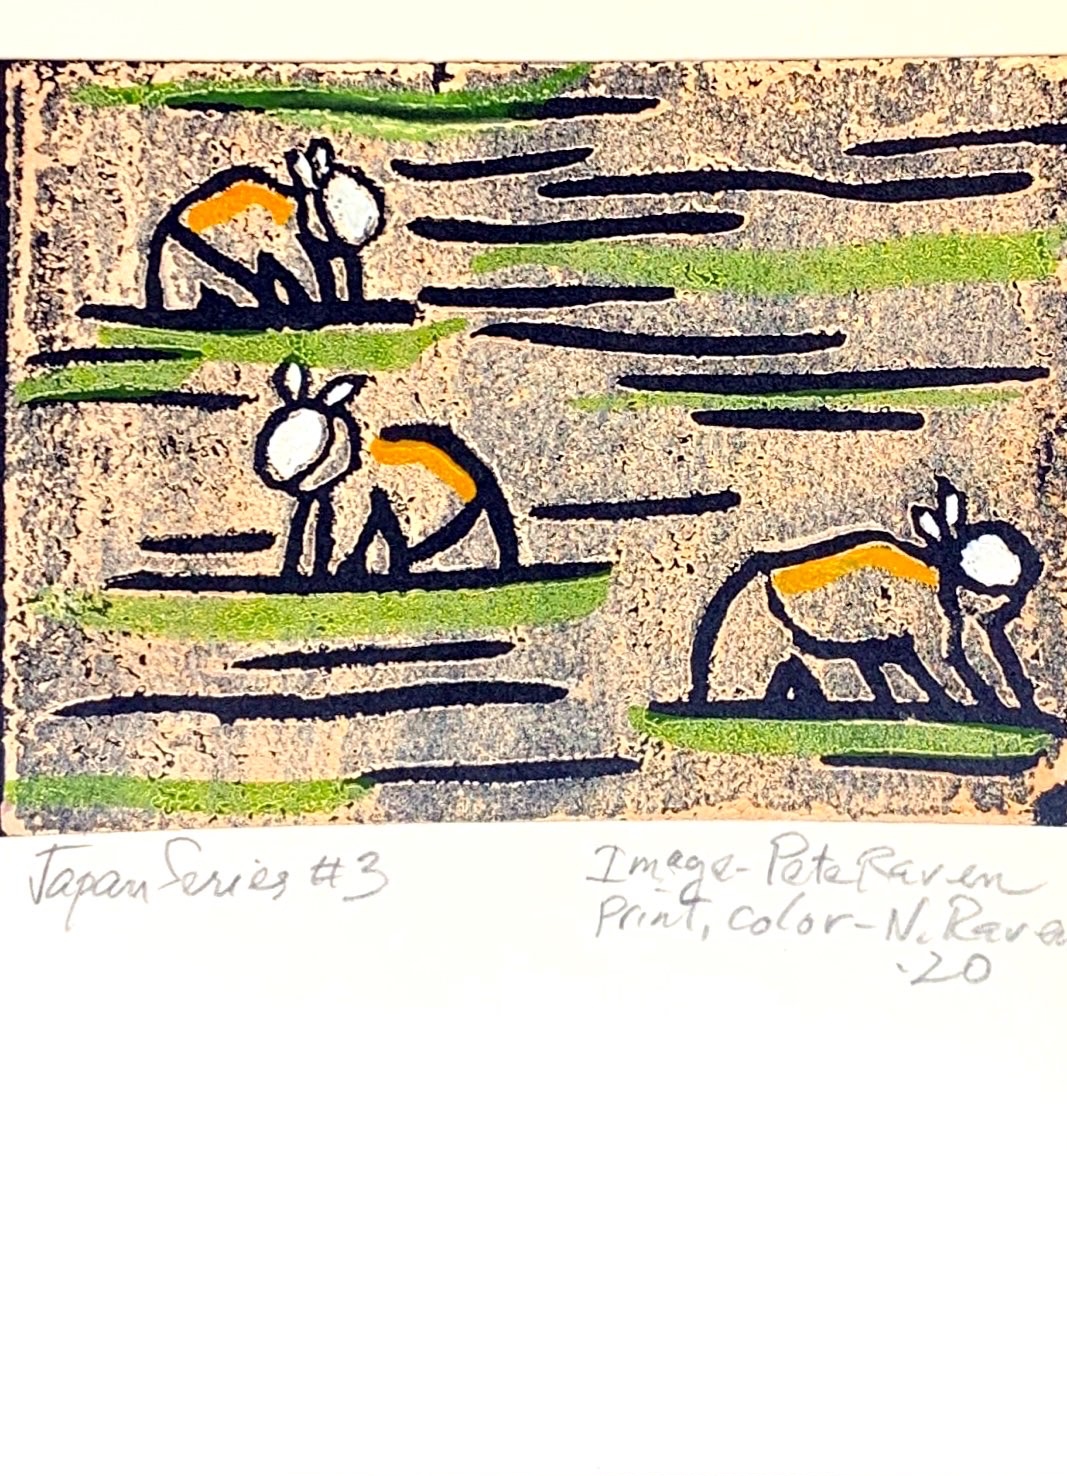 Japan Series #3
Image-Pete Raven
Print, color-N. Raven
.20